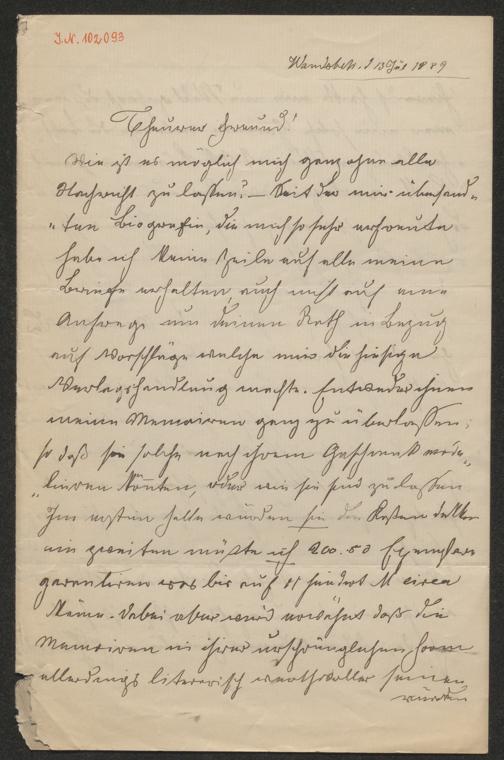 I.N. 102093
Wandsbek. d 13 Jul 1889
Theurer Freund!
Wie ist es möglich mich ganz ohne alle
Nachricht zu lassen? — Seit der mir übersand-
"ten Biografie, die mich so sehr erfreute
habe ich keine Zeile auf alle meine
Briefe erhalten, auch nicht auf eine
Anfrage um deinen Rath in Bezug
auf Vorschläge welche mir die hiesige
Verlagshandlung machte. Entweder ihnen
meine Memoiren ganz zu überlassen;
so daß sie solche nach ihrem Geschmack modu-
"liren könnten, oder wie sie sind zu lassen
Im ersten Falle würden sie die Kosten decken
im zweiten müßte ich 200. 50 Exemplare
garantiren was bis auf 11 hundert M circa
käme. Dabei aber wird erwähnt daß die
Memoiren in ihrer ursprünglichen Form
allerdings literarisch werthvoller seinen
würden